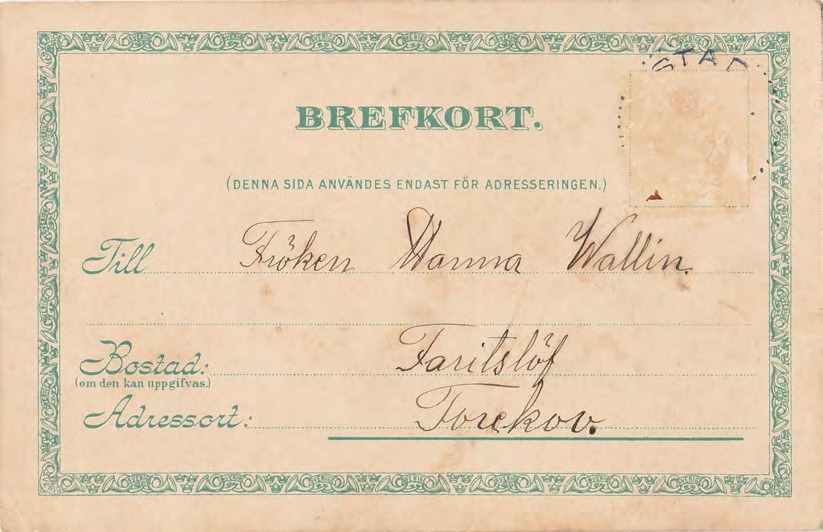 STAD
BREFKORT.
(DENNA SIDA ANVÄNDES ENDAST FÖR ADRESSERINGEN.)
Till Fröken Hanna Wallin.
Bostad: Faritslöf
(om den kan uppgifvas.)
Adressort: Torekov.